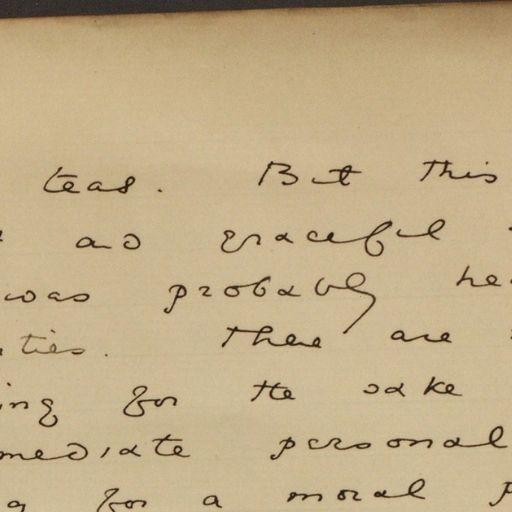 teas. But this
and graceful
was probably he
ties. There are
ing for the sake
mediate personal
g for a moral p